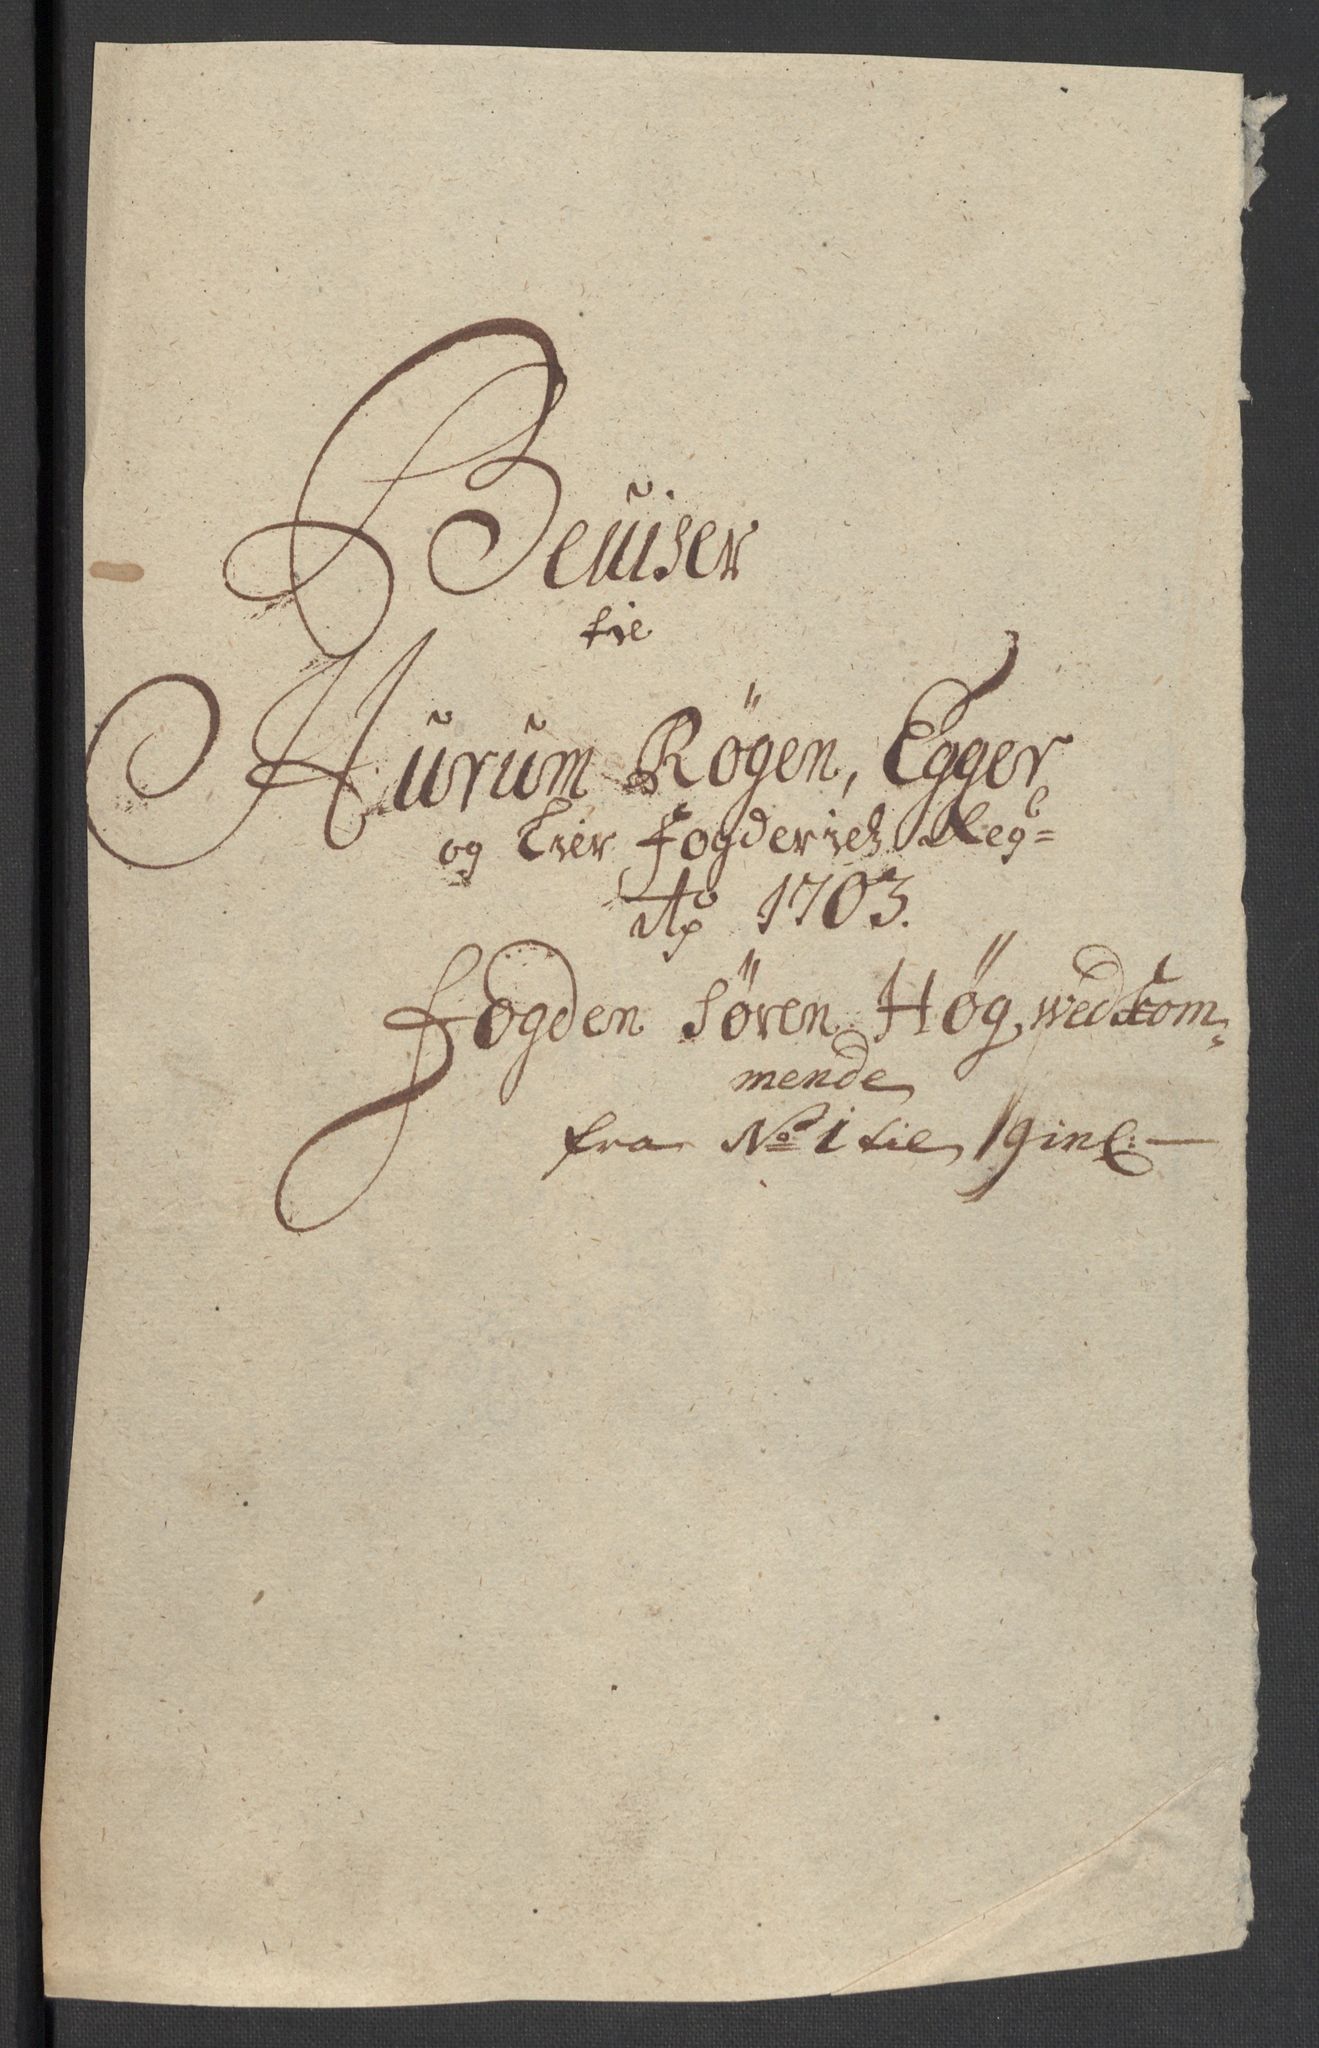 Beviser
til
Hurum Røgen, Egger
og Lier Fogderies Regb=
Ao 1703.
Fogden Søren Høg, vedkom=
mende
fra No 1 til 19 incl: —